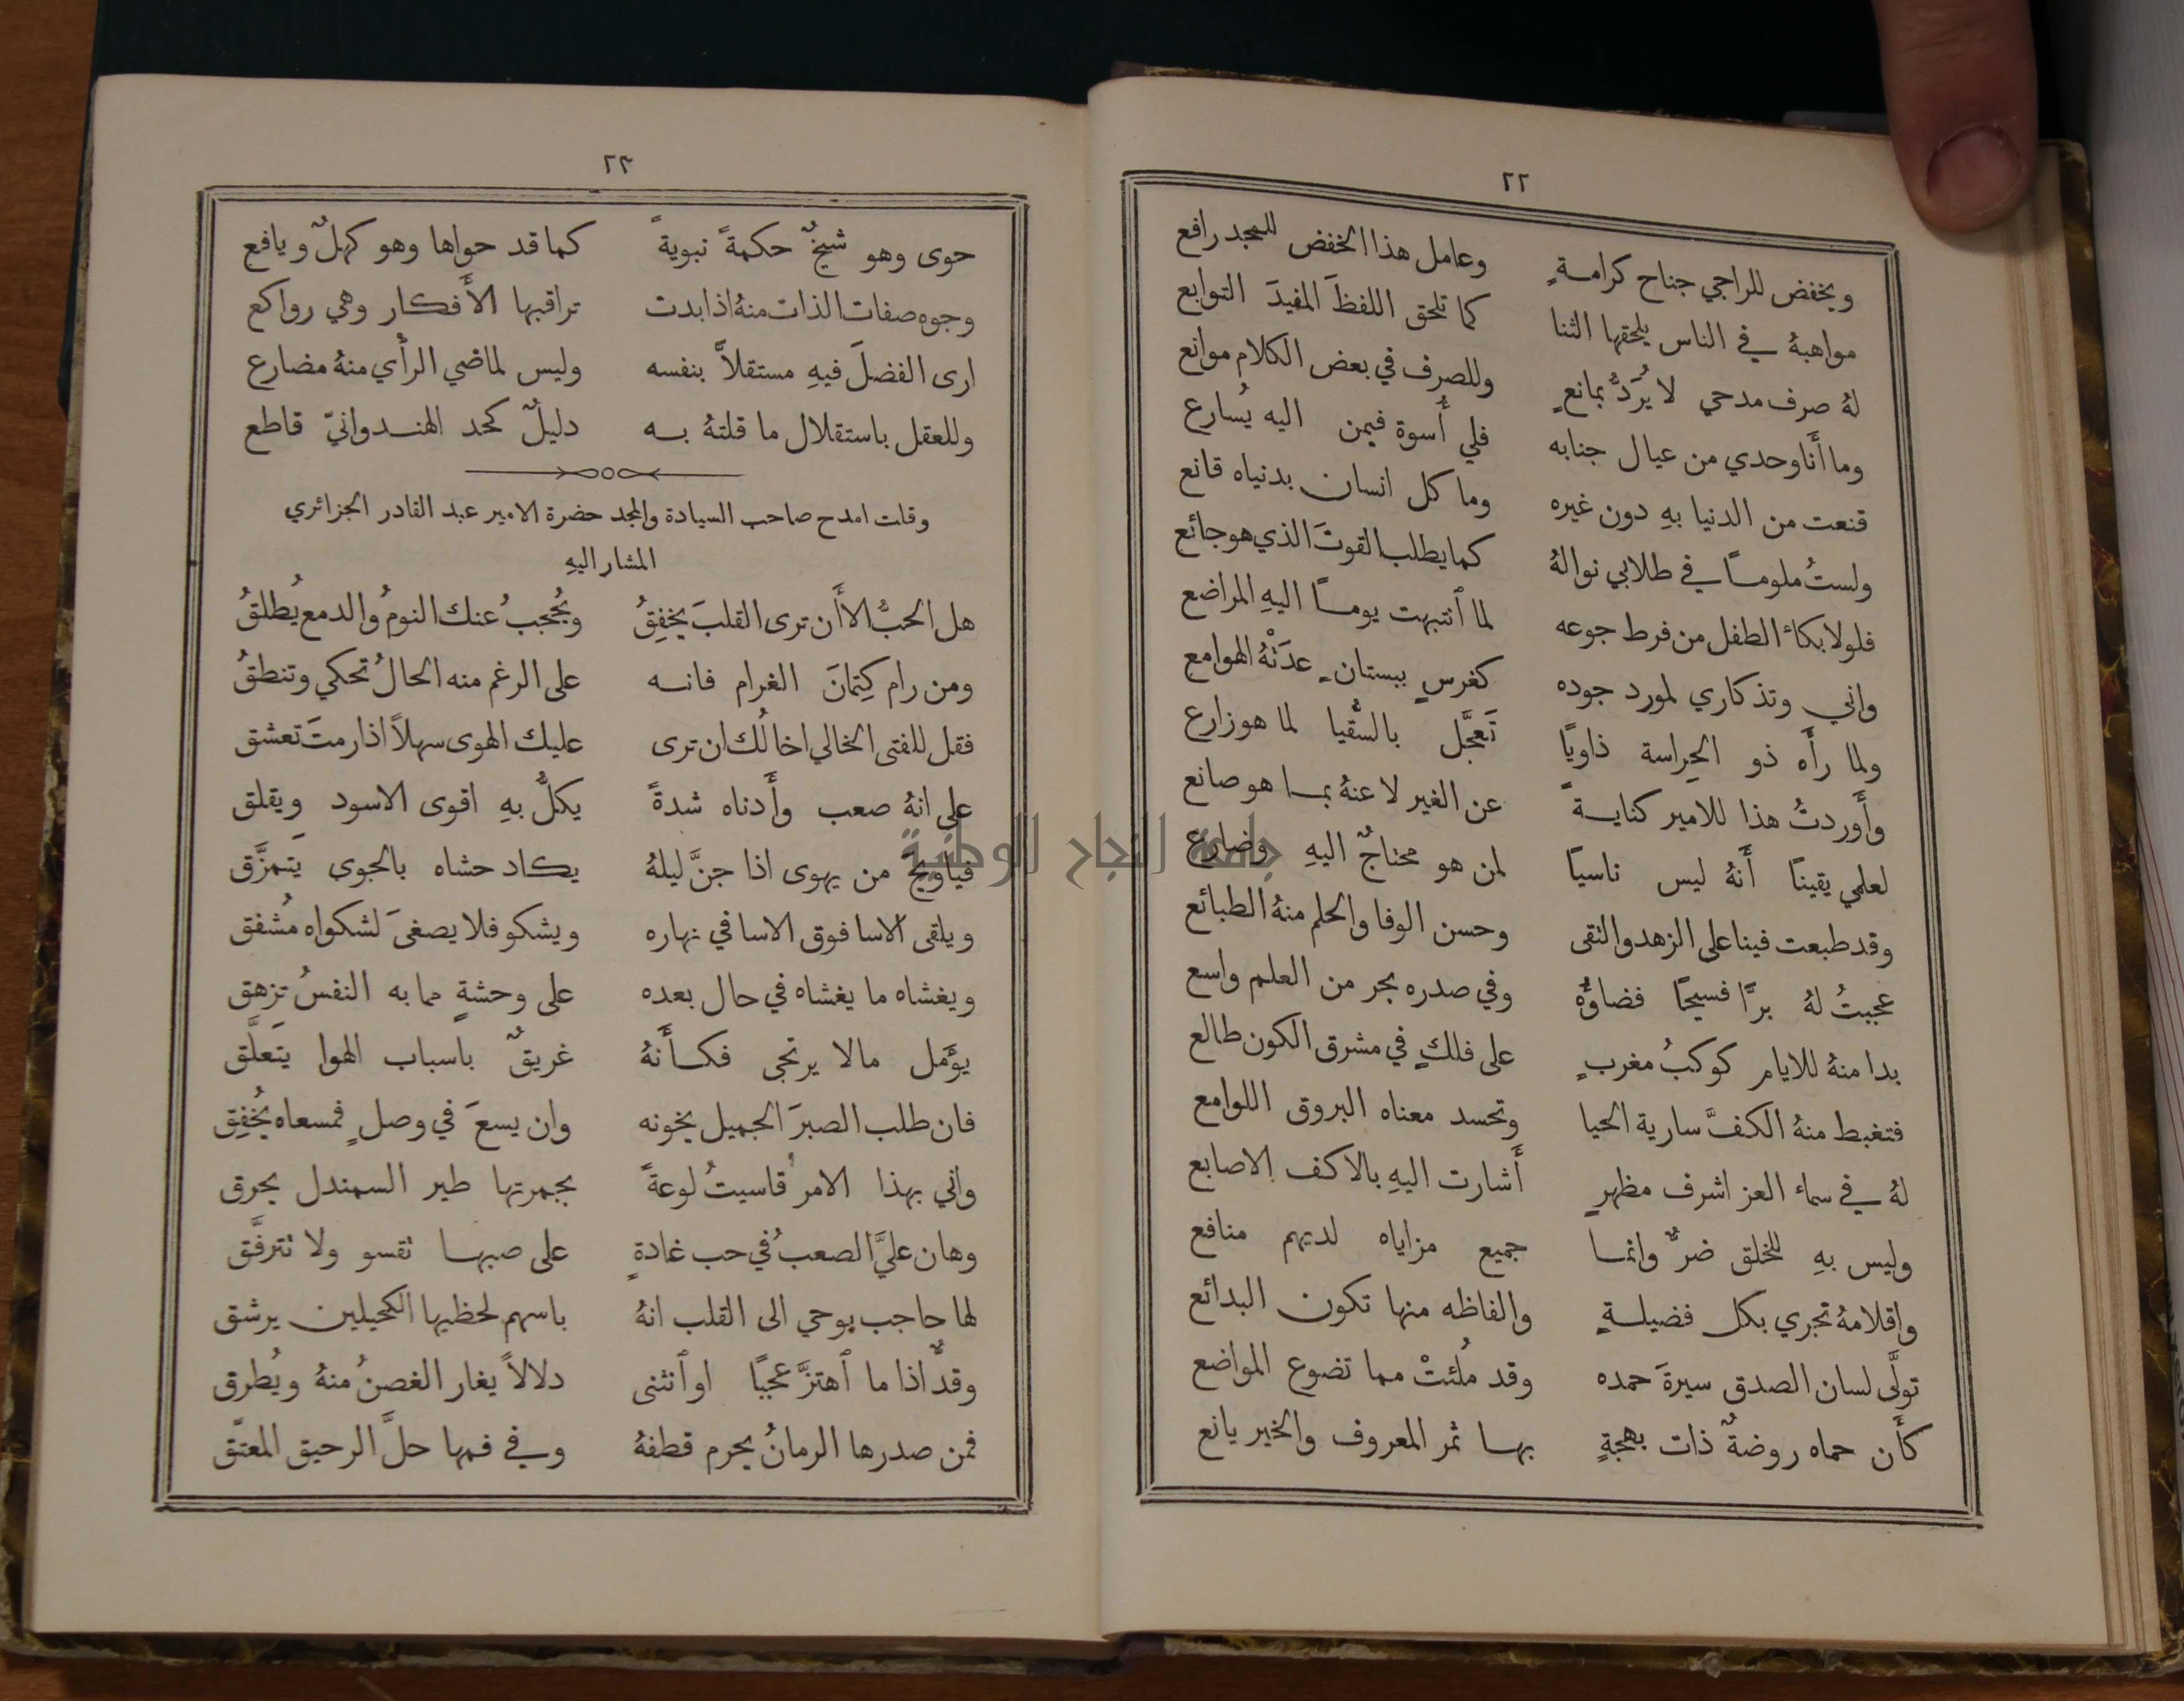 ٢٢
ويخفض للراجي جناح كرامةٍ وعامل هذا الخفض للمجد رافع
مواهبهُ في الناس يلحقها الثنا كما تلحق اللفظَ المفيدَ التوابع
لهُ صرف مدحي لا يُرَدُّ بمانعٍ وللصرف في بعض الكلام موانع
وما أَنا وحدي من عيال جنابه فلي أُسوة فيمن اليه يُسارع
قنعت من الدنيا بهِ دون غيره وما كل انسان بدنياه قانع
ولستُ ملومًا في طلابي نوالهُ كما يطلب القوتَ الذي هو جائع
فلولا بكاءُ الطفل من فرط جوعه لما ٱنتبهت يومًا اليهِ المراضع
واني وتذكاري لمورد جوده كغرسٍ ببستانٍ عدَتْهُ الهوامع
ولما رأَه ذو الحِراسة ذاويًا تَعجَّل بالسُّقيا لما هو زارع
وأَوردتُ هذا للامير كنايةً عن الغير لا عنهُ بما هو صانع
لعلمي يقينًا أَنهُ ليس ناسيًا لمن هو محتاجٌ اليهِ وضارع
وقد طبعت فينا على الزهد والتقى وحسن الوفا والحلم منهُ الطبائع
عجبتُ لهُ برًّا فسيحًا فضاؤُهُ وفي صدره بحر من العلم واسع
بدا منهُ للايام كوكبُ مغربٍ على فلكٍ في مشرق الكون طالع
فتغبط منهُ الكفَّ سارية الحيا وتحسد معناه البروق اللوامع
لهُ في سماء العز اشرف مظهرٍ أَشارت اليهِ بالاكف الاصابع
وليس بهِ للخلق ضرٌّ وانما جميع مزاياه لديهم منافع
واقلامهُ تجري بكل فضيلةٍ والفاظه منها تكون البدائع
تولَّى لسان الصدق سيرةَ حمده وقد مُلئتْ مما تضوع المواضع
كأَن حماه روضةٌ ذات بهجةٍ بها ثمر المعروف والخير يانع
٢٣
حوى وهو شيخٌ حكمةً نبويةً كما قد حواها وهو كهلٌ ويافع
وجوه صفات الذات منهُ اذا بدت تراقبها الأَفكار وهي رواكع
ارى الفضلَ فيهِ مستقلاًّ بنفسه وليس لماضي الرأْي منهُ مضارع
وللعقل باستقلال ما قلتهُ به دليلٌ كحد الهندوانيّ قاطع
وقلت امدح صاحب السيادة والمجد حضرة الامير عبد القادر الجزائري
المشار اليهِ
هل الحبُّ الاأَن ترى القلبَ يخفِقُ ويُحجبُ عنك النومُ والدمع يُطلقُ
ومن رام كِتمانَ الغرام فانه على الرغم منه الحالُ تحكي وتنطقُ
فقل للفتى الخالي اخالُك ان ترى عليك الهوى سهلاً اذا رمتَ تعشق
على انهُ صعب وأَدناه شدةً يكلُّ بهِ اقوى الاسود ويقلق
فياويحَ من يهوى اذا جنَّ ليلهُ يكاد حشاه بالجوى يتمزَّق
ويلقى الاسا فوق الاسا في نهاره ويشكو فلا يصغىَ لشكواه مُشفق
ويغشاه ما يغشاه في حال بعده على وحشةٍ مما به النفسُ تزهق
يؤَمل مالا يرتجى فكأَنهُ غريقٌ باسباب الهوا يتعلَّق
فان طلب الصبرَ الجميل يخونه وان يسعَ في وصلٍ فمسعاه يُخفِق
واني بهذا الامر قاسيتُ لوعةً بجمرتها طير السمندل يحرق
وهان عليَّ الصعبُ في حب غادةٍ على صبها تقسو ولا تترفَّق
لها حاجب يوحي الى القلب انهُ باسهم لحظيها الكحيلين يرشق
وقدٌّ اذا ما ٱهتزَّ عجبًا او ٱنثنى دلالاً يغار الغصنُ منهُ ويُطرق
فمن صدرها الرمانُ يحرم قطفهُ وفي فمها حلَّ الرحيق المعتَّق
جامعة النجاح الوطنية